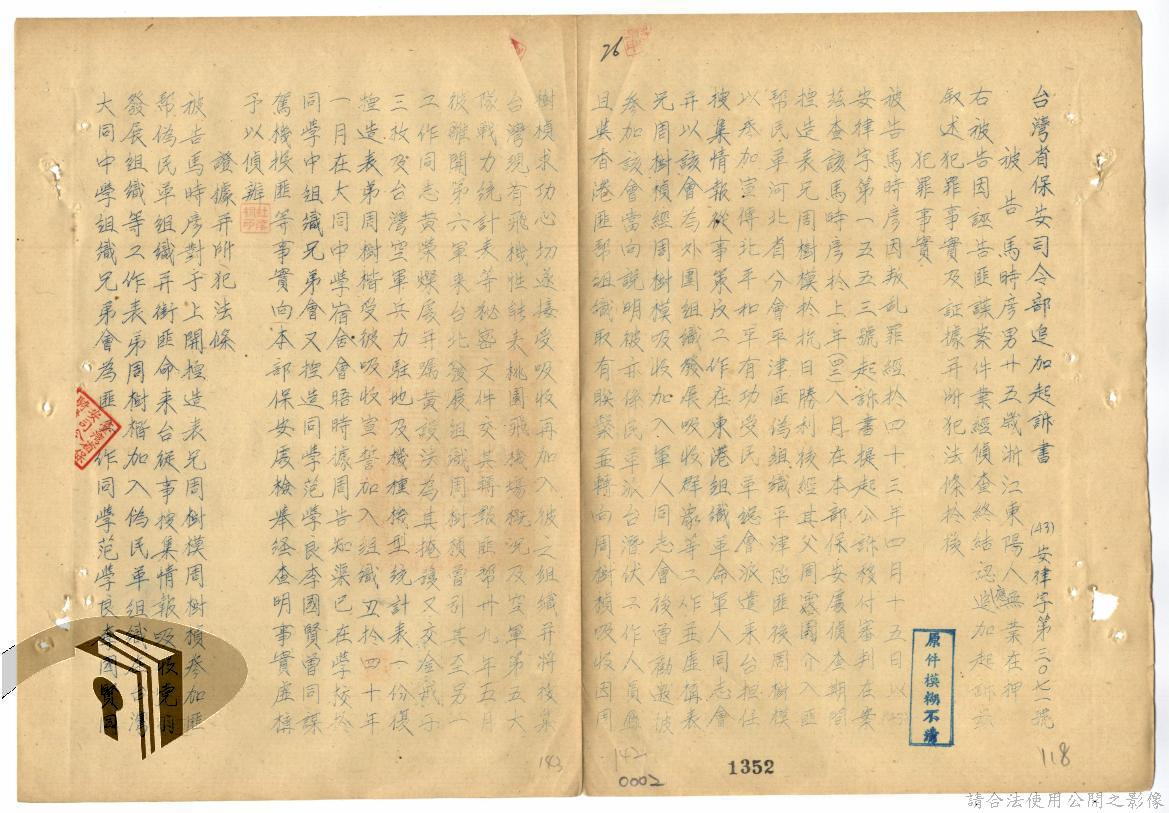 台灣省保安司令部追加起訴書
(43)安律字第三0七一號
被告 馬時彥男廿五歲浙江東陽人無業在押
右被告因誣告匪諜案件業經偵查終結認應追加起訴茲
叙述犯罪事實及証據并所犯法條於後
犯罪事實
被告馬時彥因叛乱罪經於四十三年四月十五日以(43)
安律字第一五五三號起訴書提起公訴移付審判在案
茲查該馬時彥於上年(四二)八月在本部保安處偵查期間
揑造表兄周樹模於抗日勝利後經其父周靄園介入匪
幫民革河北省分會平津區偽組織平津陷匪後周樹模
以參加宣傳北平和平有功受民革總會派遣來台担任
搜集情報從事策反工作在東港組織革命軍人同志會
并以該會為外圍組織發展吸收群眾等工作並虛稱表
兄周樹楨經周樹模吸收加入軍人同志會後曾勸邀彼
參加該會當向說明彼亦係民革派台潛伏工作人員應
且與香港匪幫組織取有联繫並轉向周樹楨吸收因周
樹楨求功心切遂接受吸收再加入彼之組織并將搜集
台灣現有飛機性能失桃園飛機場概況及空軍第五大
隊戰力統計表等秘密文件交其轉報匪幫卅九年五月
彼離開第六軍來台北發展組織周樹楨曾引其至另一
工作同志黃榮燦處并囑黃設法為其掩護又交金戒子
三枚及台灣空軍兵力駐地及機種機型統計表一份俱
揑造表弟周樹楷受彼吸收宣誓加入組織丑於四十年
一月在大同中學宿舍會晤時據周告知渠已在學校於
同學中組織兄弟會又揑造同學范學良李國賢曾同謀
駕機投匪等事實向本部保安處檢舉經查明事實虛構
予以偵辦
證據并所犯法條
被告馬時彥對于上開揑造表兄周樹模周樹楨參加匪
幫偽民革組織并銜匪命來台從事搜集情報吸收
發展組織等工作表弟周樹楷加入偽民革組織在台灣
大同中學組織兄弟會為匪工作同學范學良李國賢同
原件模糊不清
26
118
142
0002
143
1352
請合法使用公開之影像